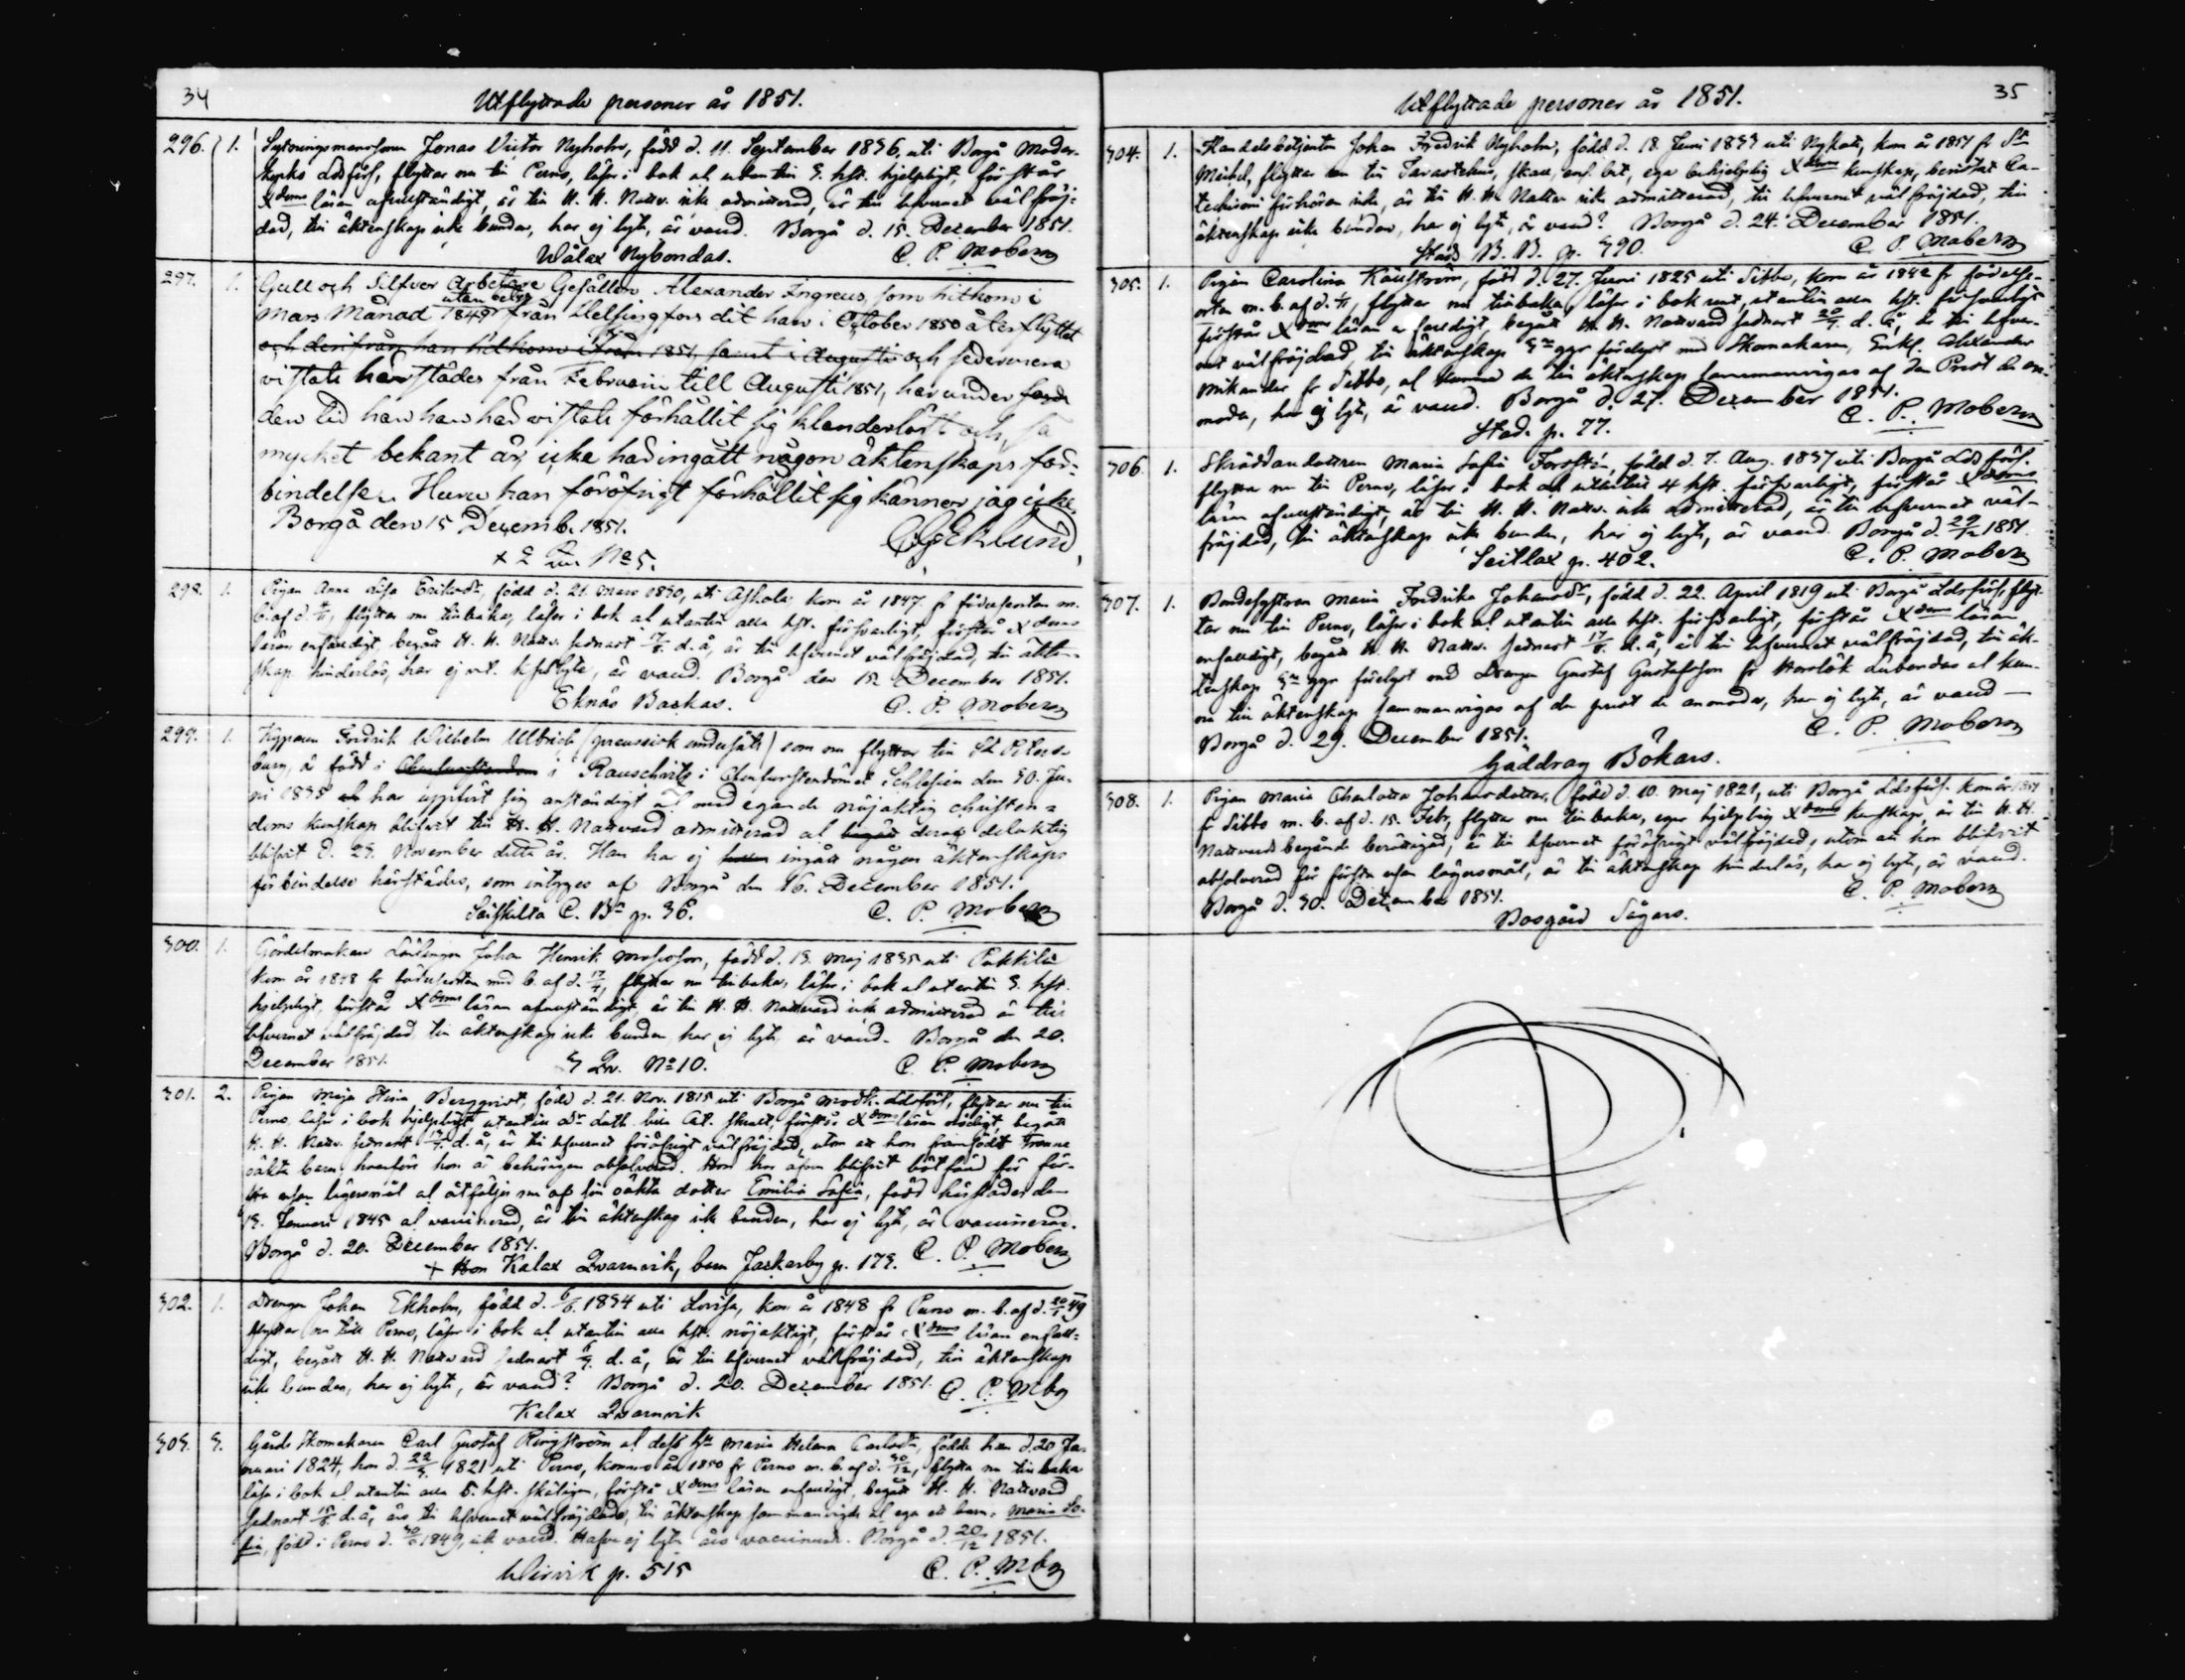 34
Utflyttade personer år 1851.
296. 1. Sytningsmanssonen Jonas Victor Nyholm, född d. 11. September 1836, uti Borgå Moder-
kyrko Ldsförs, flyttar nu till Perno, läser i bok al utantill 3. hst. hjelpligt, förstår
Xdoms läran ofullständigt, är till H. H. Nattv. icke admitterad, är till lefvernet välfräj-
dad, till äktenskap icke bunden, har ej lyte, är vacd. Borgå d. 15. December 1851.
Wålax Nybondas. C. P. Moberg
297. 1. Gull och Silfver Arbetare Gesällen Alexander Ingreus, som hitkom i
Mars Månad 1849 utan betyg från Helsingfors dit han i October 1850 återflyttat
och derifrån han hitkom 1851, samt i Augusti och sedermera
vistats härstädes från Februarii till Augusti 1851, har under
den tid han har vistats förhållit sig klanderlöst och, så
mycket bekant är, icke har ingått någon äktenskaps för-
bindelse. Huru han föröfrigt förhållit sig känner jag icke.
Borgå den 15 Decemb. 1851.
Eklund
No 5.
298. 1. Pigan Anna Lisa Eriksdr, född d. 21. Mars 1830, uti Askola, kom år 1847 fr födelseorten m.
b. af d. flyttar nu tillbaka, läser i bok al utantill alla hst. försvarligt, förstår Xdoms
läran enfaldigt, begått H. H. Nattv. sednast d. å, är till lefvernet välfräjdad, till äkten-
skap hinderlös, har ej lyte, är vacd. Borgå den 15 December 1851.
Eknäs Backas. C. P. Moberg
299. 1. Kypparen Fredrik Wilhelm Ulbrich (preussisk undersåte) som nu flyttar till St Peters-
burg, är född i Rauschwitz i Churfurstendömet Schlesien den 30. Ju-
ni 1835 har uppfört sig anständigt al med egande nöjaktig christen-
doms kunskap blifvit till H. H. Nattvard admitterad al deraf delaktig
blifvit d. 23. November detta år. Han har ej ingått någon äktenskaps
förbindelse härstädes, som intygas af Borgå den 16. December 1851.
Särskilta C. Bn p. 36. C. P. Moberg
300. 1. Gördelmakare Lärlingen Johan Henrik, född d. 13. Maj 1835 uti Pukkila
kom år 1848 fr födelseorten med b. af d. flyttar nu tillbaka, läser i bok al utantill 3. hst.
hjelpligt, förstår Xdoms läran ofullständigt, är till H. H. Nattvard icke admitterad är till
lefvernet välfräjdad, till äktenskap icke bunden har ej lyte, är vacd. Borgå den 20.
December 1851. 3 Qv. No 10. C. P. Moberg
301. 2. Pigan Maja Stina Bergqvist, född d. 21. Nov. 1815 uti Borgå Modk. Ldsförs, flyttar nu till
Perno, läser i bok hjelpligt, utantill förstår Xdoms läran nödigt, begått
H. H. Nattv. sednast d. å, är till lefvernet föröfrigt välfräjdad, utom att hon framfödt Trenne
oäkta barn, hvarföre hon är behörigen absolverad. Hon har äfven blifvit bötfäld för för-
sta resan lägersmål al åtföljes nu af sin oäkta dotter Emilia Sofia, född härstädes den
13. Januari 1845 al vaccinerad, är till äktenskap icke bunden, har ej lyte, är vaccinerad.
Borgå d. 20. December 1851.
+ Hon Kalax Qvarnvik, barn Jackarby p. 173. C. P. Moberg
302. 1. Drengen Johan Ekholm, född d. 1834 uti Lovisa, kom år 1848 fr Perno m. b. af d. 49
flyttar nu till Perno, läser i bok al utantill alla hst. nöjaktigt, förstår Xdoms läran enfall-
digt, begått H. H. Nattvard sednast d. å, är till lefvernet välfräjdad, till äktenskap
icke bunden, har ej lyte, är vacd? Borgå d. 20. December 1851. C. P. Mbg
Kalax Qvarnvik
303. 3. Gårds Skomakaren Carl Gustaf Ringström al dess hu Maria Helena Carlsdr, födde han d. 20 Ja-
nuari 1824, hon d. 22/3 1821 uti Perno, kommo år 1850 fr Perno m. b. af d. 30/12, flytta nu tillbaka
läsa i bok al utantill alla hst. skäligen, förstå Xdoms läran enfaldigt, begått H. H. Nattvard
sednast d. å, äro till lefvernet välfräjdade, till äktenskap sammanvigde al ega ett barn, Maria So-
fia, född i Perno d. 1849, ick vaccd. Hafva ej lyte äro vaccinerade. Borgå d. 20/12 1851.
p. 515 C. P. Mbg
Utflyttade personer år 1851.
35
304. 1. Handelsbetjenten Johan Fredrik Nyholm, född d. 18. Juni 1833 uti Nykarl, kom år 1851 fr St
Michel, flyttar nu till Tavastehus, skall, enl. bet, ega behjelplig Xdoms kunskap, bevistat Ca-
techismi förhören icke, är till H. H. Nattv. icke admitterad, till lefvernet välfräjdad, till
äktenskap icke bunden, har ej lyte, är vacd? Borgå d. 24. December 1851.
Stads B. B. p. 390. C. P. Moberg
305. 1. Pigan Carolina Källström, född d. 27. Juni 1825 uti Sibbo, kom år 1842 fr födelse-
orten m. b. af d. flyttar nu tillbaka, läser i bok rent, utantill alla hst. försvarligt
förstår Xdoms läran enfaldigt, begått H. H. Nattvard sednast d. å, är till lefver-
net välfräjdad, till äktenskap 3ne ggr förelyst med Skomakaren, Enkl. Alexander
Mikander fr Sibbo, al de till äktenskap sammanvigas af den Prest de an-
moda, har ej lyte, är vaccd. Borgå d. 27. December 1851.
Stad. p. 77. C. P. Moberg
306. 1. Skräddaredottren Maria Sofia Forsstén, född d. 7. Aug. 1837 uti Borgå Lds förs.
flyttar nu till Perno, läser i bok al utantill 4 hst. försvarligt, förstår Xdoms
läran ofullständigt, är till H. H. Nattv. icke admitterad, är till lefvernet väl-
fräjdad, till äktenskap icke bunden, har ej lyte, är vaccd. Borgå d. 29/12 1851.
Seitlax p. 402. C. P. Moberg
307. 1. Bondesystren Maria Fredrika Johansdr, född d. 22. April 1819 uti Borgå Ldsförs, flyt-
tar nu till Perno, läser i bok al utantill alla hst. försvarligt, förstår Xdoms läran
enfaldigt, begått H. H. Nattv. sednast d. å, är till lefvernet välfräjdad, till äk-
tenskap 3ne ggr förelyst med Drengen Gustaf Gustafsson fr al kun-
na till äktenskap sammanvigas af den prest de anmoda, har ej lyte, är vaccd —
Borgå d. 29. December 1851. C. P. Moberg
Gäddrag Bökars.
308. 1. Pigan Maria Charlotta Johansdotter, född d. 10. Maj 1821, uti Borgå Ldsförs. kom år 1851
fr Sibbo m. b. af d. 15. Febr, flyttar nu tillbaka, eger hjelplig Xdoms kunskap, är till H. H.
Nattvards begående berättigad, är till lefvernet föröfrigt välfräjdad, utom att hon blifvit
absolverad för första resan lägersmål, är till äktenskap hinderlös, har ej lyte, är vaccd.
Borgå d. 30. December 1851. C. P. Moberg
Bosgård Sågars.